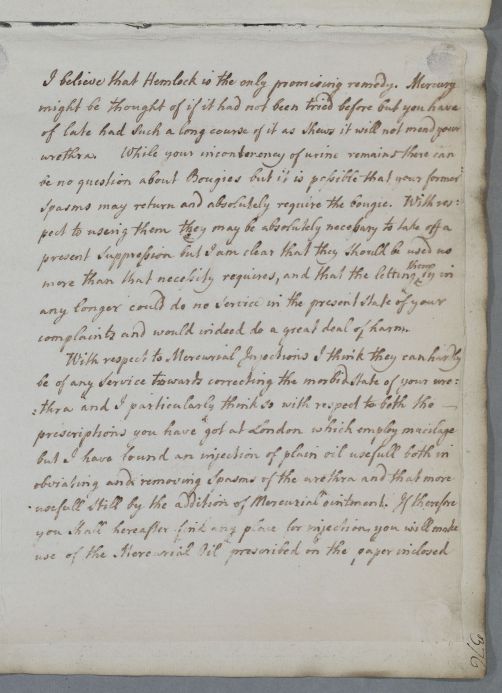 I believe that Hemlock is the only promising remedy. Mercury
might be thought of if it had not been tried before but you have
of late had such a long course of it as shews it will not mend your
urethra. While your incontenency of urine remains there can
be no question about Bougies but it is possible that your former
Spasms may return and absolutely require the bougie. With res:
pect to using them they may be absolutely necessary to take off a
present Suppression but I am clear that they should be used no
more than that necessity requires, and that the letting them ly in
any longer could do no Service in the present State of your
complaints and would indeed do a great deal of harm.
With respect to Mercurial Injections I think they can hardly
be of any Service towards correcting the morbid State of your ure:
:thra and I particularly think so with respect to both the
prescriptions you have got at London which employ mucilage
but I have found an injection of plain oil usefull both in
obviating and removing Spasms of the urethra and that more
usefull still by the addition of Mercurial ointment. If therefore
you shall hereafter find any place for injection, you will make
use of the Mercurial Oil prescribed on the paper inclosed